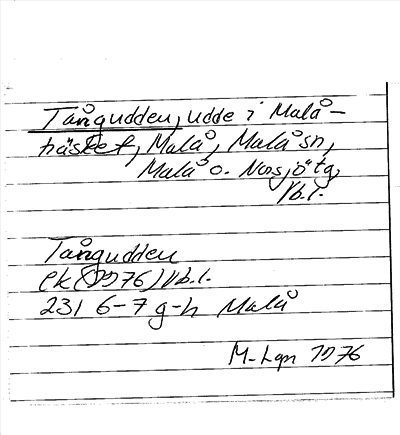 Tångudden, udde i Malå-
träsket, Malå, Malå sn,
Malå o. Norsjö tg,
Vb.l.
Tångudden
Ek (1976) Vb.l.
231 6-7 g-h Malå
M-Lgn 1976